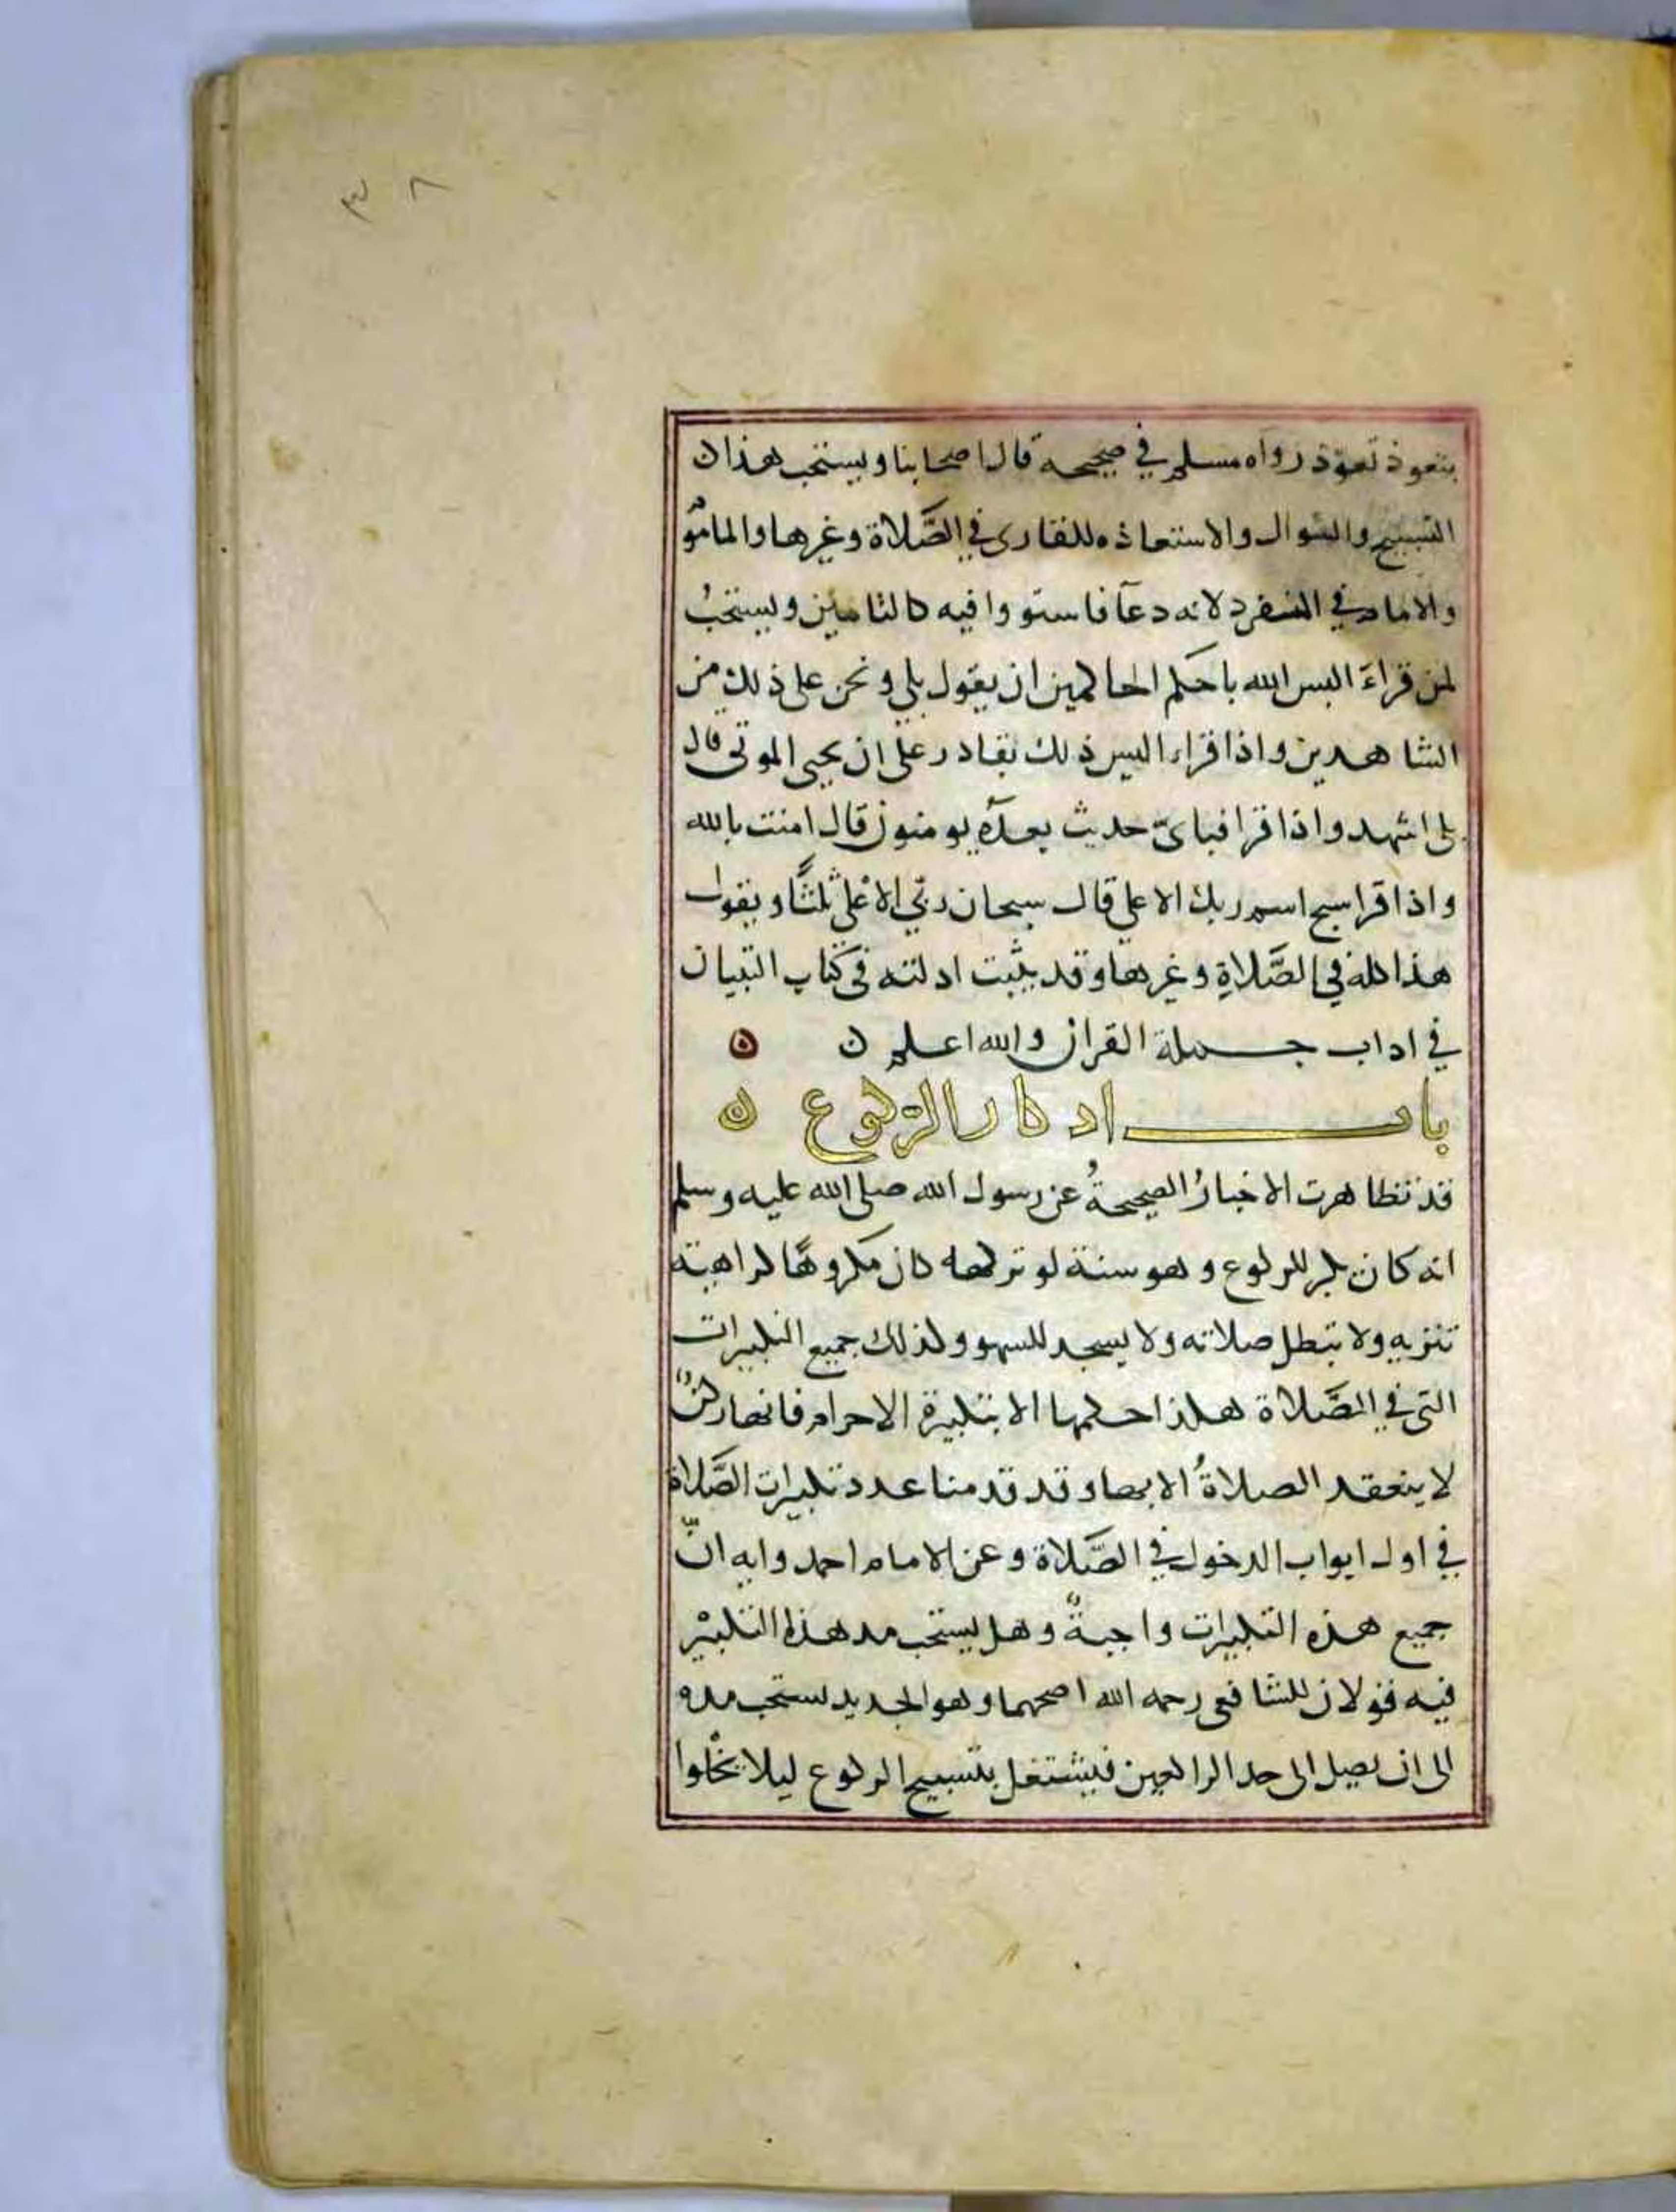 ٣٨
بتعوذ تعوّذ رواه مسلم في صحيحه قال اصحابنا ويستحب هذان
التسبيح والسوال والاستعاذه للقارى في الصَّلاة وغرها والمامُو
والامام في المنفرد لانه دعآ فاستووا فيه كالتامين ويستحبُ
لمن قراءَ اليس الله باحكم الحاكمين ان يقول بلى ونحن على ذلك من
الشاهدين واذا قراء اليس ذلك بقادر على ان يحيى الموتى قال
بلى اشهد واذا قرا فباىّ حديث بعدَه يومنون قال امنت بالله
واذا قرا سبح اسم ربك الاعلى قال سبحان ربّي الاعْلى ثلثًا ويقول
هذا كله في الصَّلاةِ وغرها وقد بيّنت ادلته في كتاب التبيان
في اداب حملة القران والله اعلم ن ه
باب اذكار الركوع ن
قد تظاهرت الاخبارُ الصحيحةُ عن رسول الله صلى الله عليه وسلم
انه كان يكبر للركوع وهو سنة لو تركه كان مكروهًا كراهية
تنزيه ولا تبطل صلاته ولا يسجد للسهو وكذلك جميع التكبيرات
التي في الصَّلاة هكذا حكمها الا بتكبيرة الاحرام فانها ركنٌ
لا ينعقد الصلاةُ الا بها وقد قدمنا عدد تكبيرات الصَّلاة
في اول ابواب الدخول في الصَّلاة وعن الامام احمد وايه انّ
جميع هذه التكبيرات واجبةٌ وهل يستحب مد هذا التكبيْر
فيه قولان للشافعي رحمه الله اصحهما وهو الجديد يستحب مده
الى ان يصل الى حد الراكعين فيشتغل بتسبيح الركوع ليلا يخْلوا